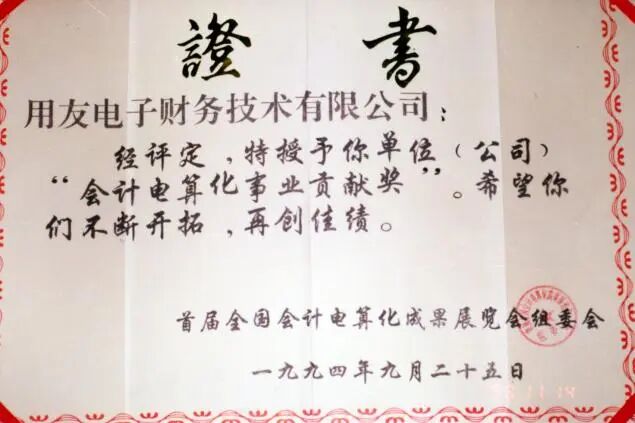 證 書
用友电子财务技术有限公司：
经评定，特授予你单位（公司）
“会计电算化事业贡献奖”。希望你
们不断开拓，再创佳绩。
首届全国会计电算化成果展览会组委会
一九九四年九月二十五日